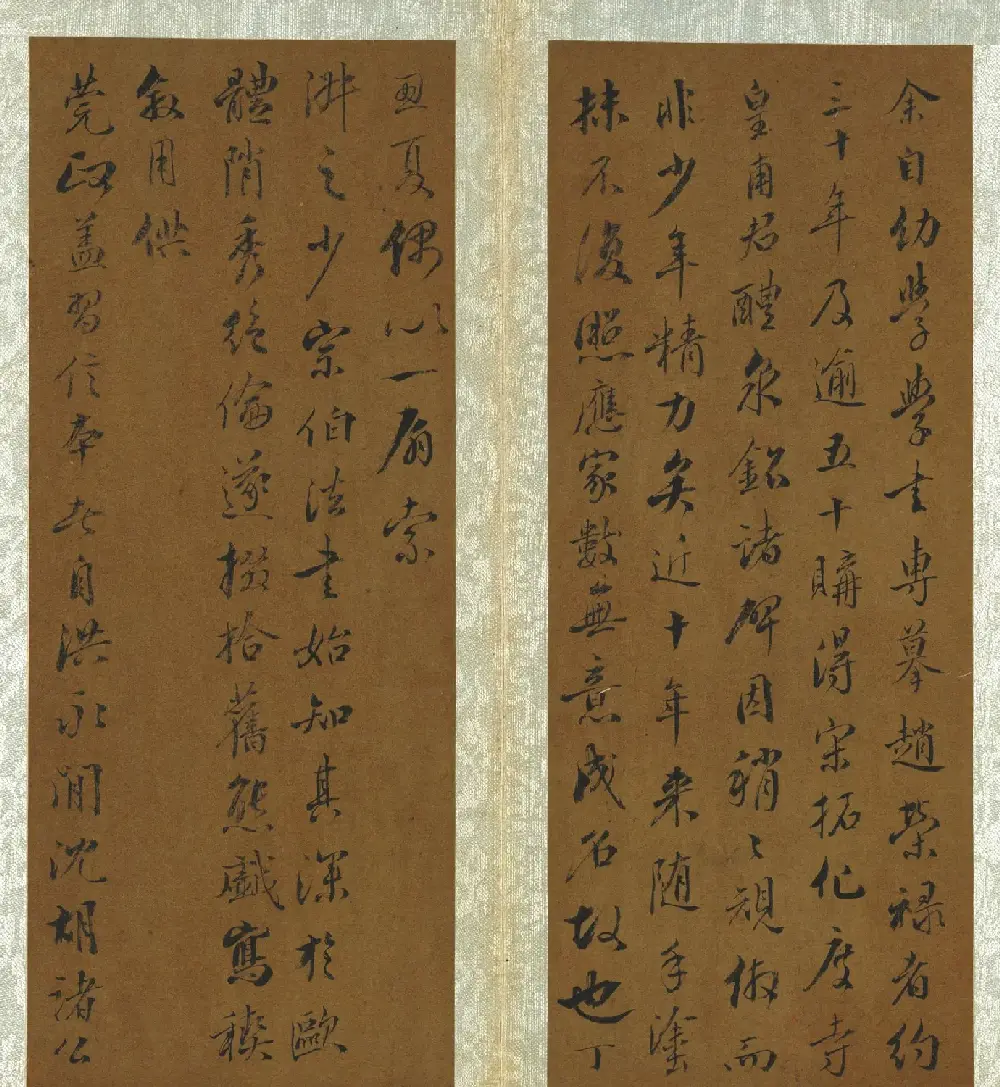 余自幼學學書專摹趙榮祿者約
三十年及逾五十購得宋拓化度寺
皇甫君醴泉銘諸碑因稍〻規倣而
非少年精力矣近十年來随手塗
抹不復照應家數無意成名故也丁
丑夏偶以一扇索
泋之少宗伯法書始知其深於歐
體陗秀絕倫遂掇拾舊態戲寫稧
敘用供
莞政盖習信本者自洪永間沈胡諸公